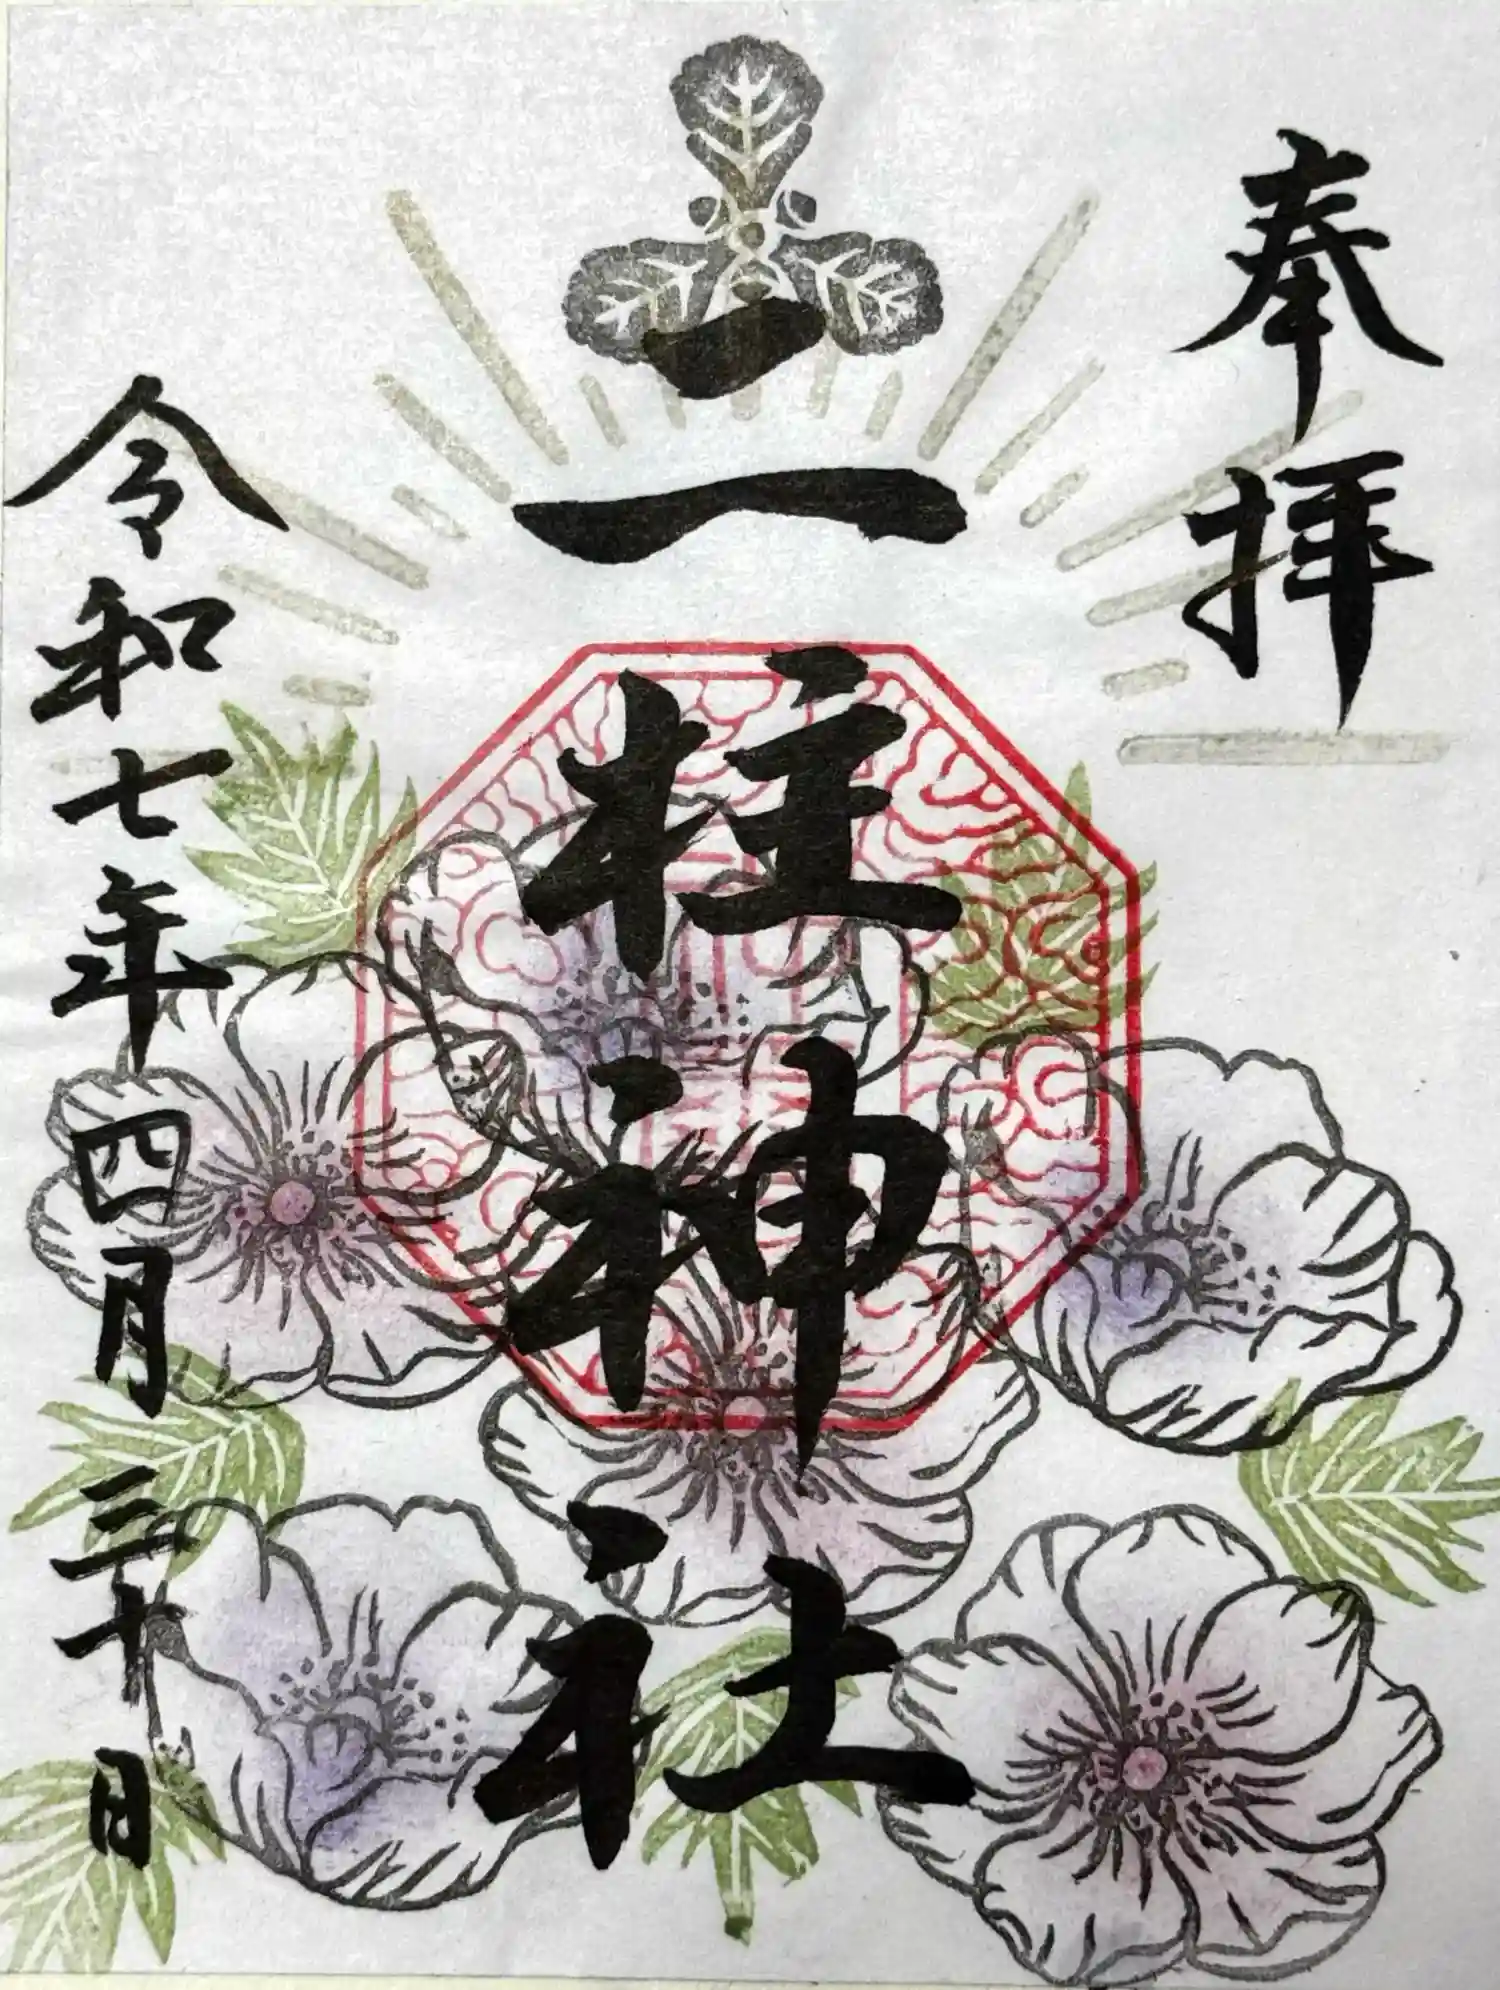 奉拝
二柱神社
令和七年四月三十日